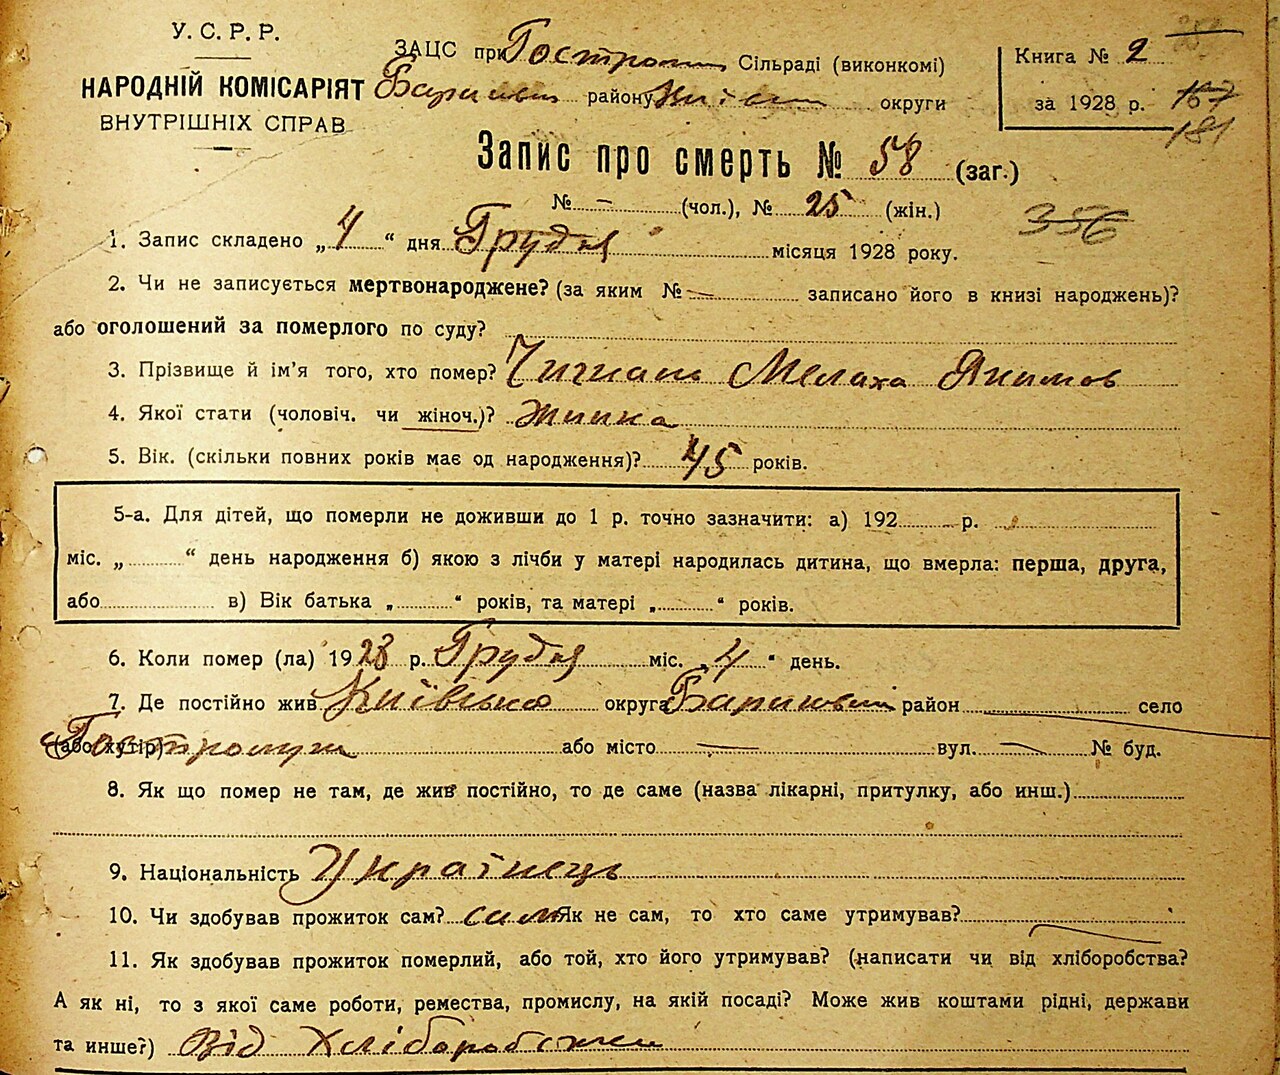 У. С. Р. Р.
НАРОДНІЙ КОМІСАРІЯТ
ВНУТРІШНІХ СПРАВ
ЗАЦС при Сільраді (виконкомі)
району округи
Книга № 2
за 1928 р. 167
181
Запис про смерть № 58 (заг.)
№ – (чол.), № 25 (жін.)
356
1. Запис складено „4“ дня Грудня місяця 1928 року.
2. Чи не записується мертвонароджене? (за яким № — записано його в книзі народжень)?
або оголошений за померлого по суду?
3. Прізвище й ім'я того, хто помер? Мелаха Якимов
4. Якої стати (чоловіч. чи жіноч.)? жінка
5. Вік. (скільки повних років має од народження)? 45 років.
5-а. Для дітей, що померли не доживши до 1 р. точно зазначити: а) 192 р.
міс. „ “ день народження б) якою з лічби у матері народилась дитина, що вмерла: перша, друга,
або в) Вік батька „ “ років, та матері „ “ років.
6. Коли помер (ла) 1928 р. Грудня міс. „4“ день.
7. Де постійно жив Київська округа район село
(або хутір) або місто — вул. — № буд.
8. Як що помер не там, де жив постійно, то де саме (назва лікарні, притулку, або инш.)
9. Національність Українець
10. Чи здобував прожиток сам? сам Як не сам, то хто саме утримував?
11. Як здобував прожиток померлий, або той, хто його утримував? (написати чи від хліборобства?
А як ні, то з якої саме роботи, ремества, промислу, на якій посаді? Може жив коштами рідні, держави
та инше?) Від